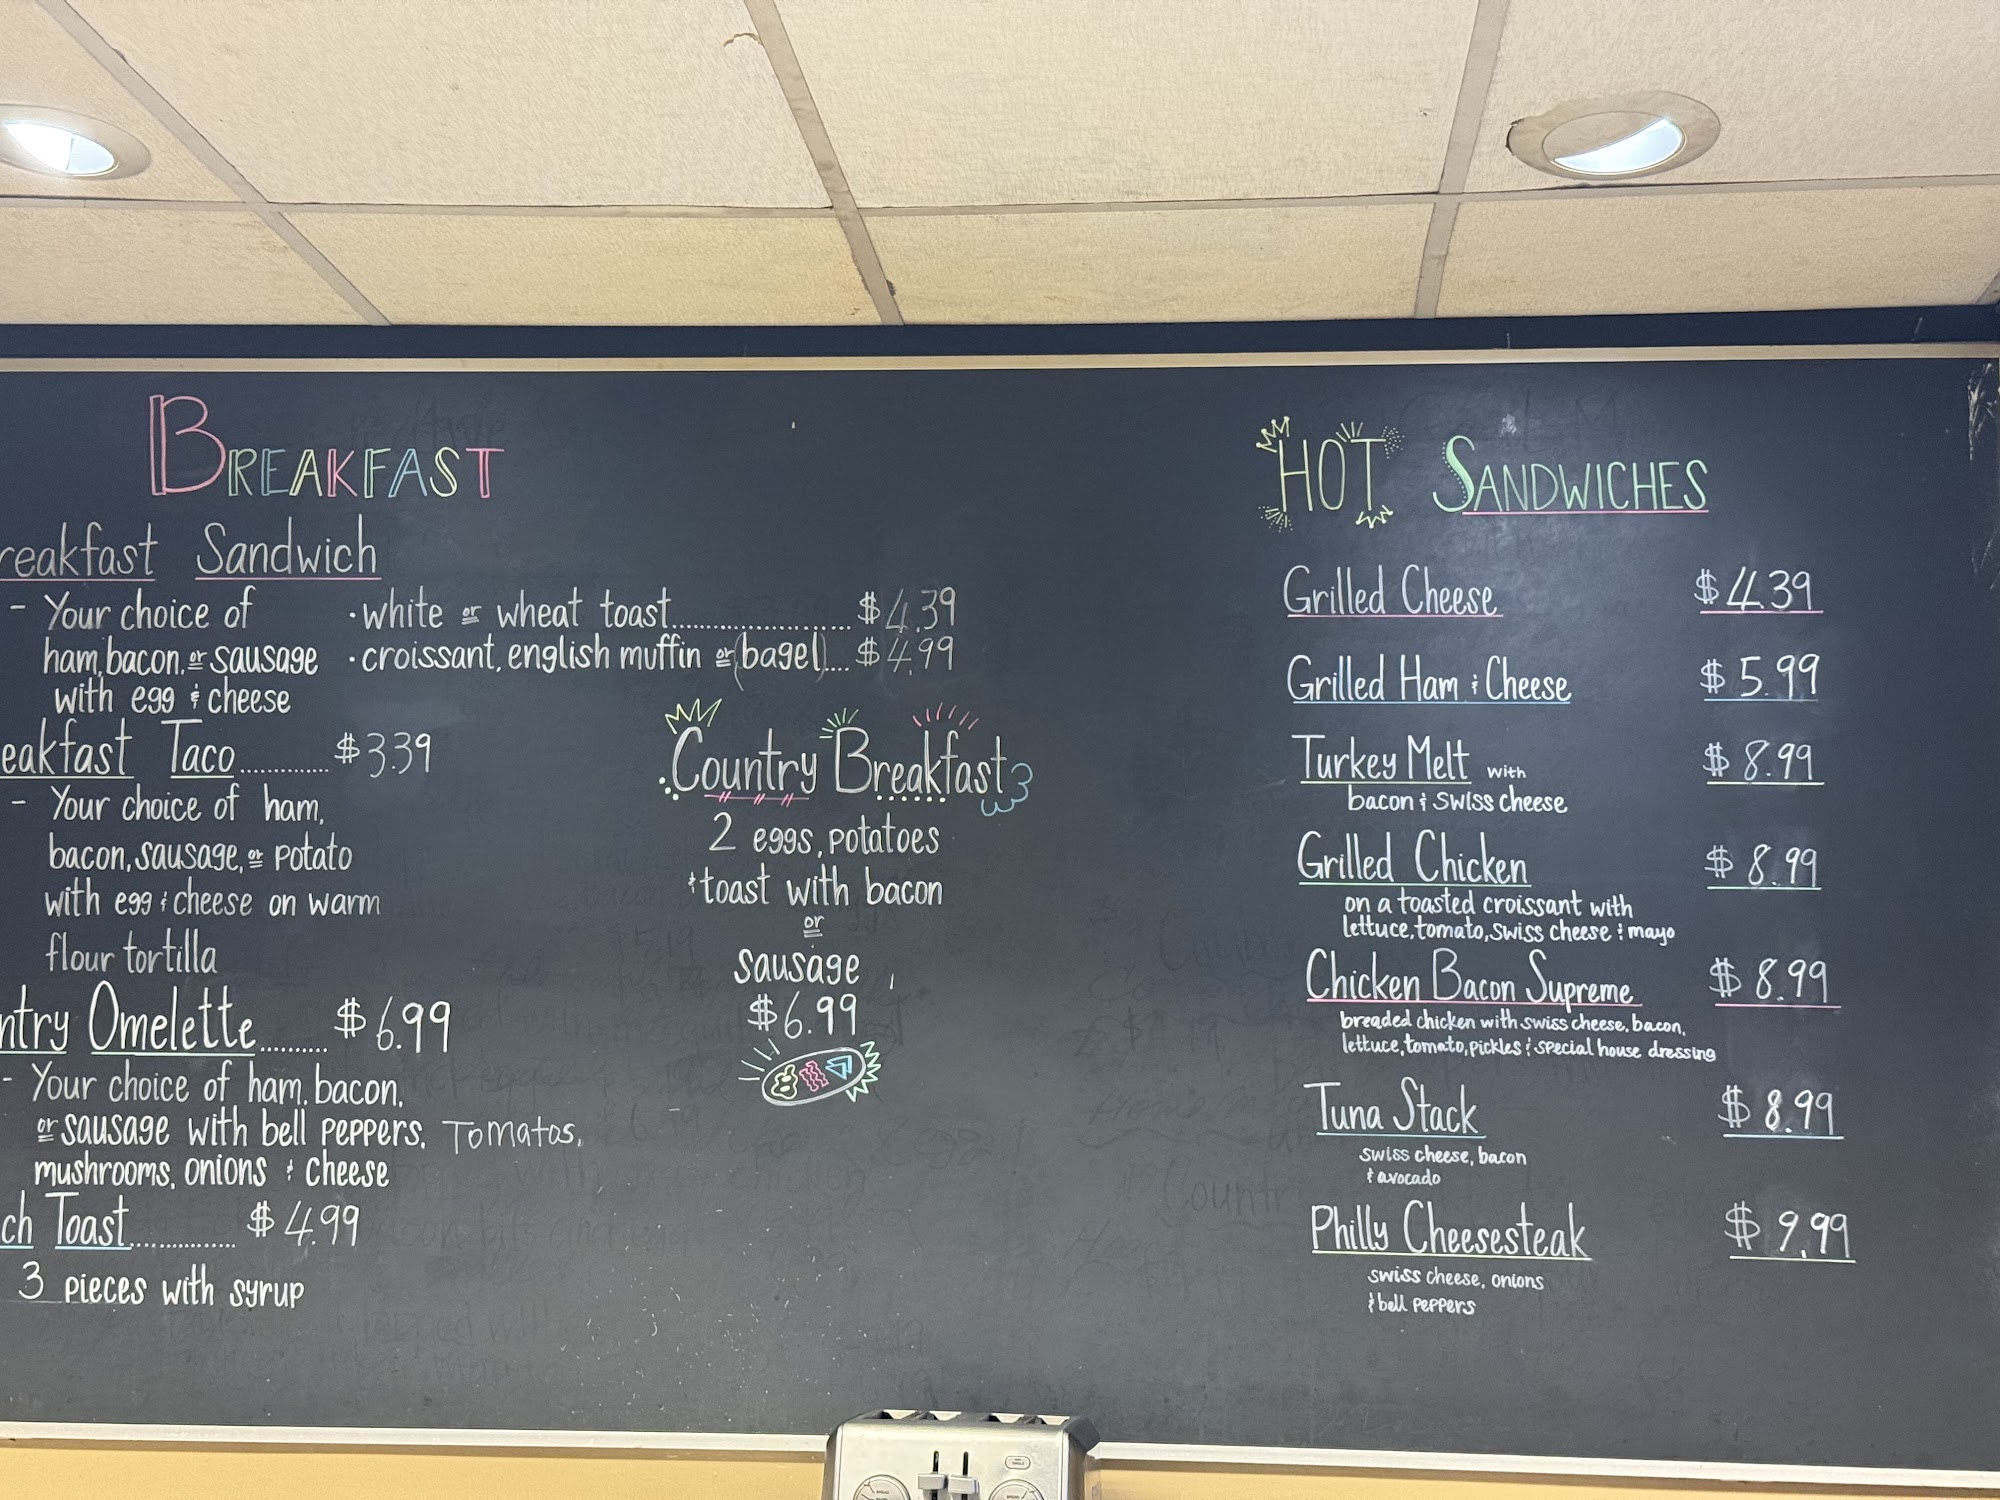 BREAKFAST
reakfast Sandwich
- Your choice of
ham, bacon, or sausage
with egg & cheese
• white or wheat toast..................... $4.39
• croissant, english muffin or (bagel).... $4.99
eakfast Taco............. $3.39
- Your choice of ham,
bacon, sausage, or potato
with egg & cheese on warm
flour tortilla
ntry Omelette.......... $6.99
- Your choice of ham, bacon,
or sausage with bell peppers, Tomatos,
mushrooms, onions & cheese
ch Toast.............. $4.99
3 pieces with syrup
Country Breakfast
2 eggs, potatoes
& toast with bacon
or
sausage
$6.99
HOT SANDWICHES
Grilled Cheese $4.39
Grilled Ham & Cheese $5.99
Turkey Melt with $8.99
bacon & swiss cheese
Grilled Chicken $8.99
on a toasted croissant with
lettuce, tomato, swiss cheese & mayo
Chicken Bacon Supreme $8.99
breaded chicken with swiss cheese, bacon,
lettuce, tomato, pickles & special house dressing
Tuna Stack $8.99
swiss cheese, bacon
& avocado
Philly Cheesesteak $9.99
swiss cheese, onions
& bell peppers